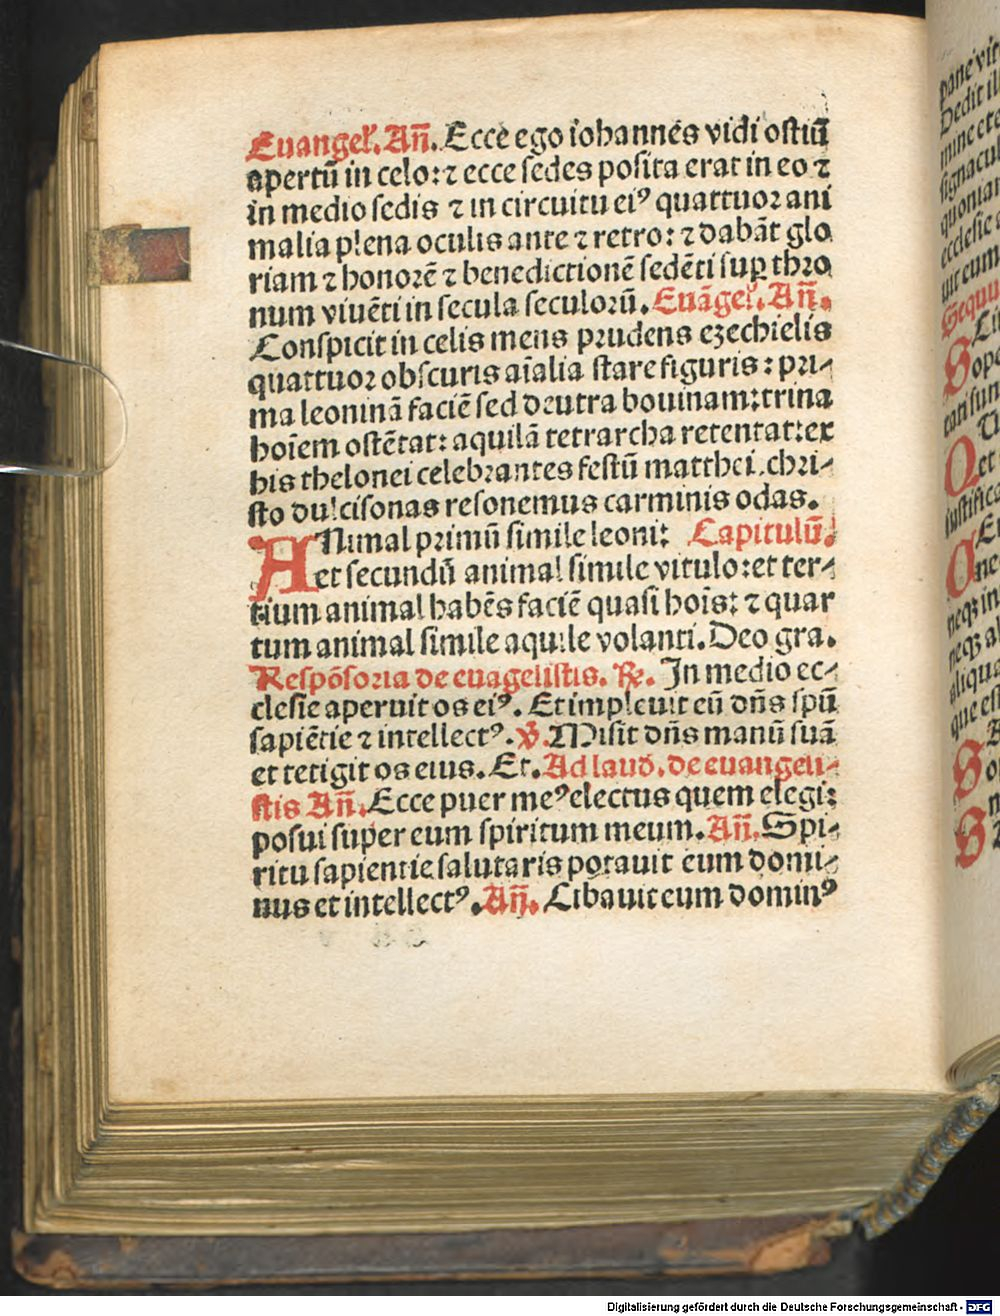 Euangel᷑. Añ. Ecce ego iohannes vidi ostiū
apertū in celo: ⁊ ecce sedes posita erat in eo ⁊
in medio sedis ⁊ in circuitu eiꝰ quattuor ani
malia plena oculis ante ⁊ retro: ⁊ dabāt glo
riam ⁊ honorē ⁊ benedictionē sedēti suꝑ thro
num viuēti in secula seculorū. Euāgel᷑. Añ.
Conspicit in celis mens prudens ezechielis
quattuor obscuris aīalia stare figuris: pri⸗
ma leoninā faciē sed deutra bouinam: trina
hoīem ostētat: aquilā tetrarcha retentat: ex
his thelonei celebrantes festū matthei. chri⸗
sto dulcisonas resonemus carminis odas.
ANimal primū simile leoni: Capitulū.
et secundū animal simile vitulo: et ter⸗
tium animal habēs faciē quasi hoīs: ⁊ quar
tum animal simile aquile volanti. Deo gra.
Respōsoria de euāgelistis. ℟. In medio ec⸗
clesie aperuit os eiꝰ. Et impleuit eū dn̄s spū
sapiētie ⁊ intellectꝰ. ℣. Misit dn̄s manū suā
et tetigit os eius. Et. Ad laud. de euangeli⸗
stis Añ. Ecce puer meꝰ electus quem elegi:
posui super eum spiritum meum. Añ. Spi⸗
ritu sapientie salutaris potauit eum domi⸗
nus et intellectꝰ. Añ. Cibauit eum dominꝰ
Digitalisierung gefördert durch die Deutsche Forschungsgemeinschaft - DFG